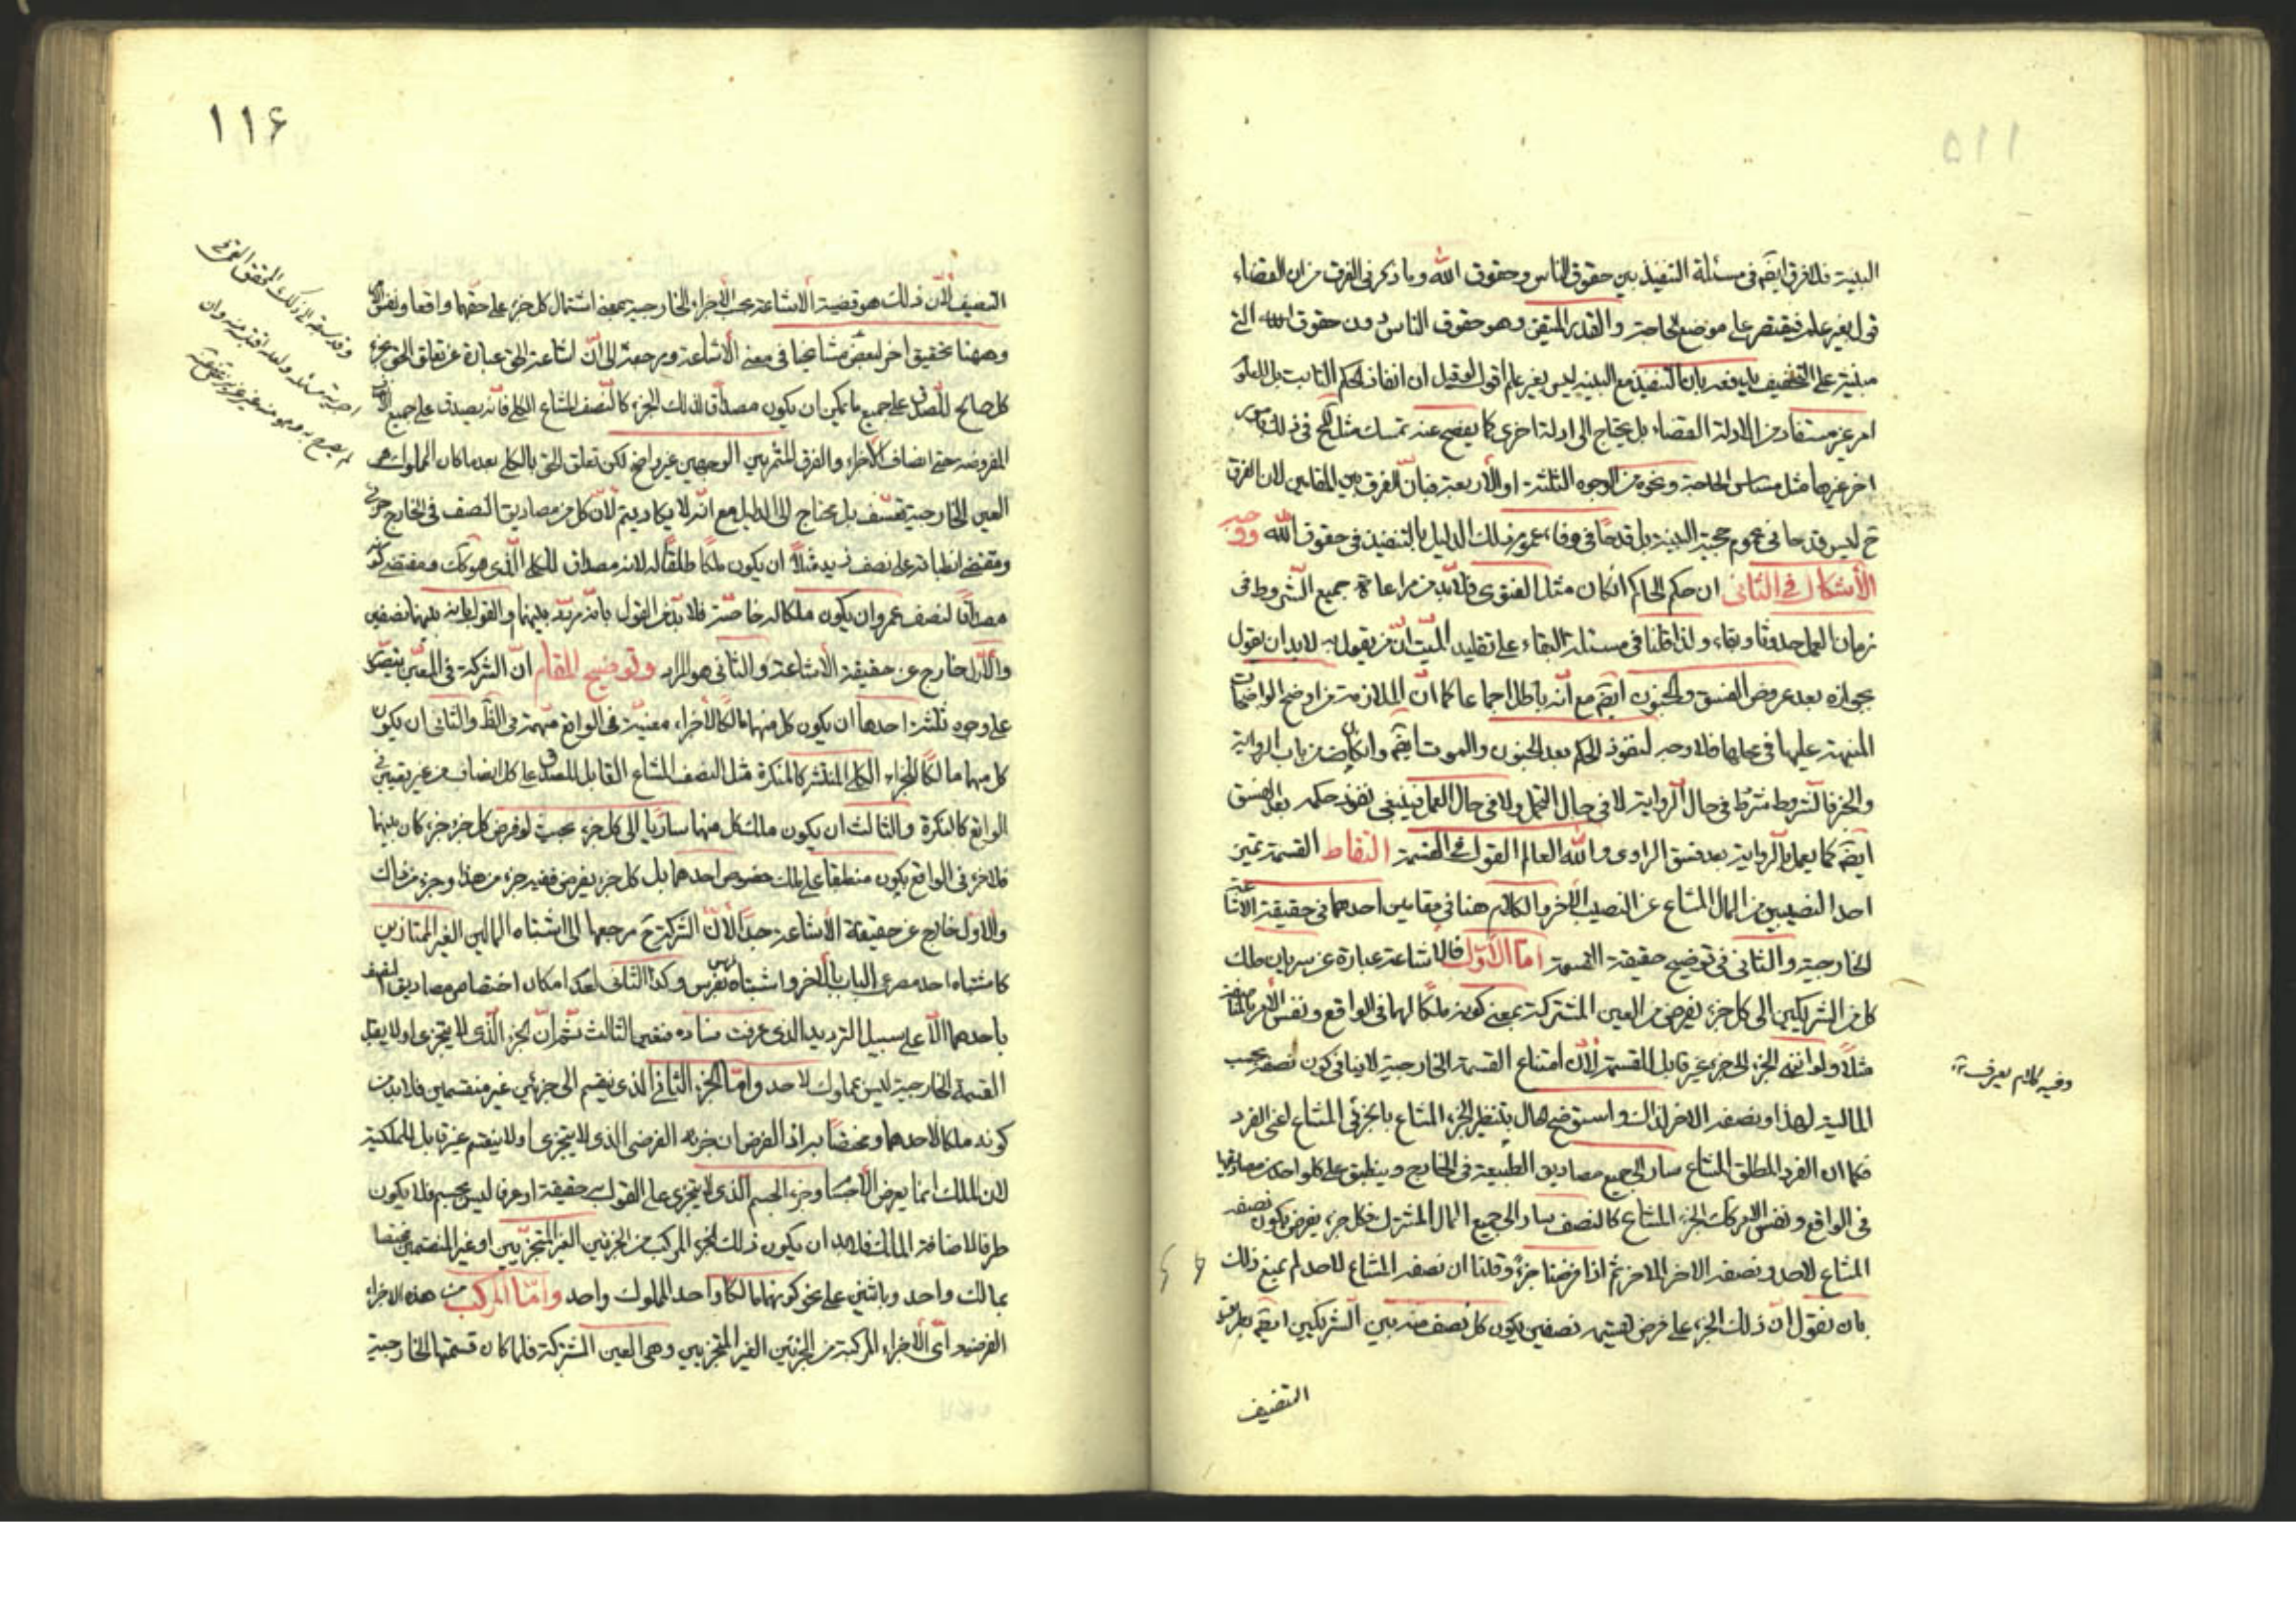 البينة فلا فرق ايضا في مسئلة التنفيذ بين حقوق الناس وحقوق الله وما ذكر في الفرق من ان القضاء
قول بغير علم فيقتصر على موضع الحاجة والقدر المتيقن وهو حقوق الناس دون حقوق الله التي
مبنية على التخفيف يدفعه بان التنفيذ مع البينة ليس بغير علم اقول لو قيل ان انفاذ الحكم الثابت
امر غير مستفاد من ادلة القضاء بل يحتاج الى ادلة اخرى كما يفصح عنه تمسك مثل في ذلك بامور
اخر غيرها مثل مساس الحاجة ونحوه من الوجوه الثلثة او الأربعة فبان الفرق بين المقامين لان الفرق
ح ليس قدحا في عموم حجية البينة بل قدحا في وفاء عموم ذلك الدليل بالتنفيذ في حقوق الله ووجه
الأشكال في الثاني ان حكم الحاكم ان كان مثل الفتوى فلا بد من مراعاة جميع الشروط في
زمان العمل حدوثا وبقاء ولذا قلنا في مسئلة البقاء على تقليد الميت ان من يقول به لا بد ان يقول
بجوازه بعد عروض الفسق والجنون ايضا مع انه باطل اجماعا كما ان الملازمة من اوضح الواضحات
المنبهة عليها في محلها فلا وجه لنفوذ الحكم بعد الجنون والموت ايضا وان كان من باب الرواية
والخبر فالشروط شرط في حال الرواية لا في حال التحمل ولا في حال العمل فينبغي نفوذ حكمه بعد الفسق
ايضا كما يعمل بالرواية بعد فسق الراوي والله العالم القول في القسمة التقاط القسمة تميز
احد النصيبين من المال المشاع عن النصيب الاخر والكلام هنا في مقامين احدهما في حقيقة الاشاعة
الخارجية والثاني في توضيح حقيقة القسمة اما الأول فالاشاعة عبارة عن سريان ملك
كل من الشريكين الى كل جزء يفرض من العين المشتركة بمعنى كونه ملكا لهما في الواقع ونفس الأمر بالمناصفة
مثلا ولو انتهى الجزء الى جزء غير قابل للقسمة لأن امتناع القسمة الخارجية لا ينافي كون نصفه بحسب
المالية لهذا ونصفه الاخر لذلك واستوضح الحال بتنظير الجزء المشاع بالجزئي المشاع اعني الفرد
فكما ان الفرد المطلق المشاع سار الى جميع مصاديق الطبيعة في الخارج وينطبق على كل واحد من مصاديقها
في الواقع ونفس الامر كك الجزء المشاع كالنصف سار الى جميع المال المشترك فكل جزء يفرض يكون نصفه
المشاع لاحد ونصفه الاخر للاخر ثم اذا فرضنا جزء وقلنا ان نصفه المشاع لاحد لم يمنع ذلك
بان نقول ان ذلك الجزء على فرض قسمته نصفين يكون كل نصف منه بين الشريكين ايضا بطريق
التنصيف
وفيه كلام يعرف
١١٦
التنصيف لأن ذلك هو قضية الاشاعة بحسب الأجزاء الخارجية بمعنى اشتمال كل جزء على حقهما واقعا ونفس الأمر
وههنا تحقيق اخر لبعض مشايخنا في معنى الاشاعة ومرجعه الى ان اشاعة الحق عبارة عن تعلق الحق بجزء
كلي صالح للصدق على جميع ما يمكن ان يكون مصداقا لذلك الجزء كالنصف المشاع الكلي فانه يصدق على جميع
المفروضة حتى انصاف الأجزاء والفرق المثمر بين الوجهين غير واضح لكن تعلق الحق بالكلي بعد ما كان المملوك هو
العين الخارجية تعسف بل يحتاج الى الدليل مع انه لا يكاد يتم لأن كل من مصاديق النصف في الخارج جزئي
ومقتضى انطباقه على نصف زيد مثلا ان يكون ملكا طلقا له لانه مصداق للكلي الذي هو كك ومقتضى كونه
مصداقا لنصف عمرو ان يكون ملكا له خاصة فلا بد من القول بانه مردد بينهما والقول بانه بينهما نصفين
والأول خارج عن حقيقة الاشاعة والثاني هو المراد وتوضيح المقام ان الشركة في المعين يتصور
على وجوه ثلثة احدها ان يكون كل منهما مالكا لأجزاء معينة في الواقع مبهمة في الظ والثاني ان يكون
كل منهما مالكا للجزء الكلي المنتشر كالنكرة مثل النصف المشاع القابل للصدق على كل انصاف من غير تعيين في
الواقع كالنكرة والثالث ان يكون ملك كل منهما ساريا الى كل جزء بحيث لو فرض كل جزء جزء كان بينهما
فلا جزء في الواقع يكون منطبقا على ملك خصوص احدهما بل كل جزء يفرض ففيه جزء من هذا وجزء من ذاك
والأول خارج عن حقيقة الأشاعة جدا لأن الشركة ح مرجعها الى اشتباه المالين الغير الممتازين
كاشتباه احد مصرعي الباب بالآخر واشتباه فرس بفرس وكذا الثاني لعدم امكان اختصاص مصاديق النصف
باحدهما الا على سبيل الترديد الذي عرفت فساده فتعين الثالث ثم ان الجزء الذي لا يتجزى او لا يقبل
القسمة الخارجية ليس مملوك لاحد واما الجزء الثاني الذي ينقسم الى جزئين غير منقسمين فلا بد من
كونه ملكا لاحدهما ومختصا به اذ الفرض ان جزئه الفرضي الذي لا يتجزى او لا ينقسم غير قابل للملكية
لان الملك انما يعرض الأجسام وجزء الجسم الذي لا يتجزى على القول به حقيقة او عرفا ليس بجسم فلا يكون
طرفا لاضافة المالك فلا بد ان يكون ذلك الجزء المركب من الجزئين الغير المتجزيين او غير المنقسمين مختصا
بمالك واحد وباثنين على نحو كونهما مالكا واحدا لمملوك واحد واما المركب من هذه الاجزاء
الفرضية وأي الأجزاء المركبة من الجزئين الغير المتجزيين وهي العين المشتركة فلما كان قسمتها الخارجية